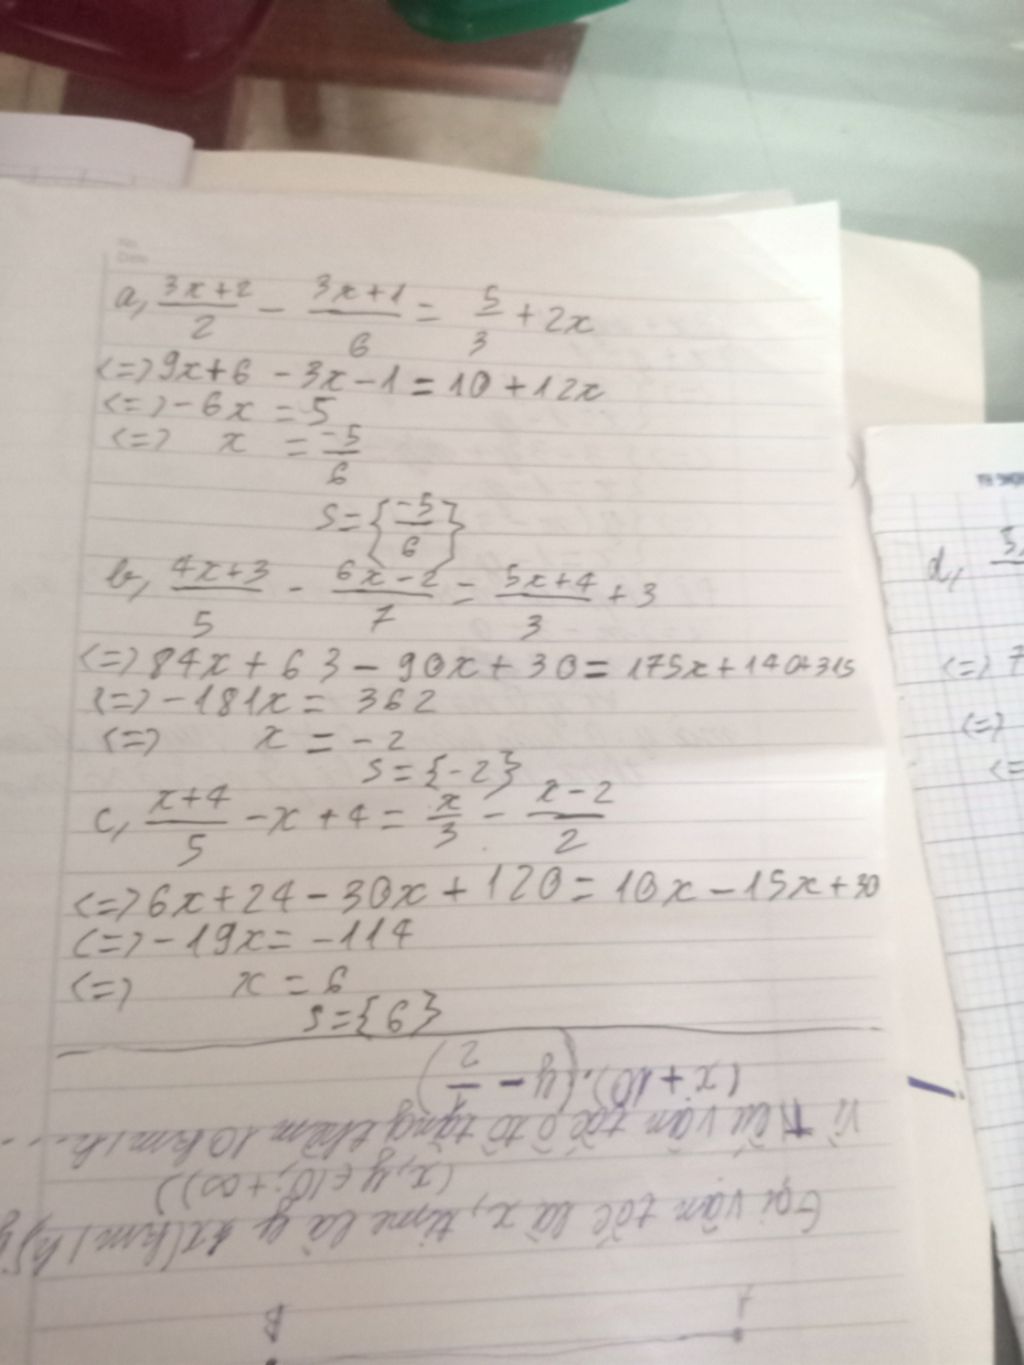 No.
Date
a, \frac{3x+2}{2} - \frac{3x+1}{6} = \frac{5}{3} + 2x
<=> 9x+6 - 3x-1 = 10 + 12x
<=> -6x = 5
<=> x = \frac{-5}{6}
S = {\frac{-5}{6}}
b, \frac{4x+3}{5} - \frac{6x-2}{7} = \frac{5x+4}{3} + 3
<=> 84x + 63 - 90x + 30 = 175x + 140+315
<=> -181x = 362
<=> x = -2
S = {-2}
c, \frac{x+4}{5} - x + 4 = \frac{x}{3} - \frac{x-2}{2}
<=> 6x + 24 - 30x + 120 = 10x - 15x + 30
<=> -19x = -114
<=> x = 6
S = {6}
d,
<=> 7
<=>
<=
A B
Gọi vận tốc là x, time là y (km/h;
(x, y ∈ (0; +∞))
Vì Nếu vận tốc ô tô tăng thêm 10km/h...
(x + 10).(y - \frac{1}{2})